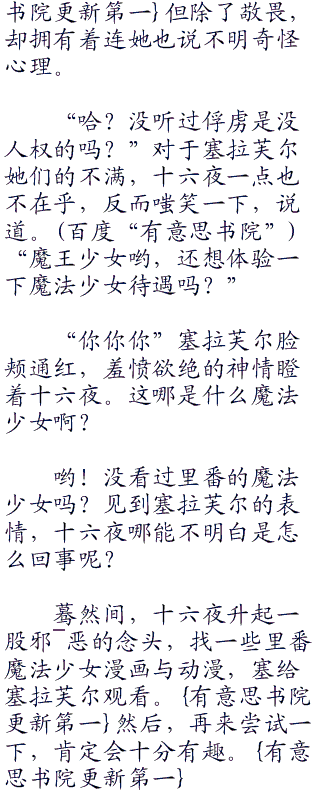 书院更新第一}但除了敬畏，
却拥有着连她也说不明奇怪
心理。
“哈？没听过俘虏是没
人权的吗？”对于塞拉芙尔
她们的不满，十六夜一点也
不在乎，反而嗤笑一下，说
道。(百度“有意思书院”)
“魔王少女哟，还想体验一
下魔法少女待遇吗？”
“你你你”塞拉芙尔脸
颊通红，羞愤欲绝的神情瞪
着十六夜。这哪是什么魔法
少女啊？
哟！没看过里番的魔法
少女吗？见到塞拉芙尔的表
情，十六夜哪能不明白是怎
么回事呢？
蓦然间，十六夜升起一
股邪¯恶的念头，找一些里番
魔法少女漫画与动漫，塞给
塞拉芙尔观看。{有意思书院
更新第一}然后，再来尝试一
下，肯定会十分有趣。{有意
思书院更新第一}